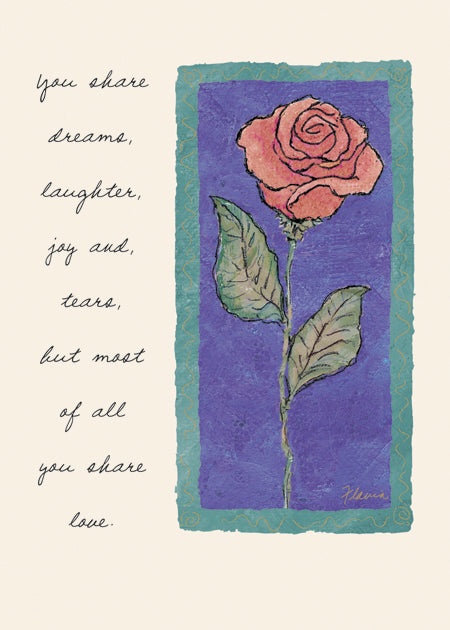 You share
dreams,
laughter,
joy and,
tears,
but most
of all
you share
love.
Flavia